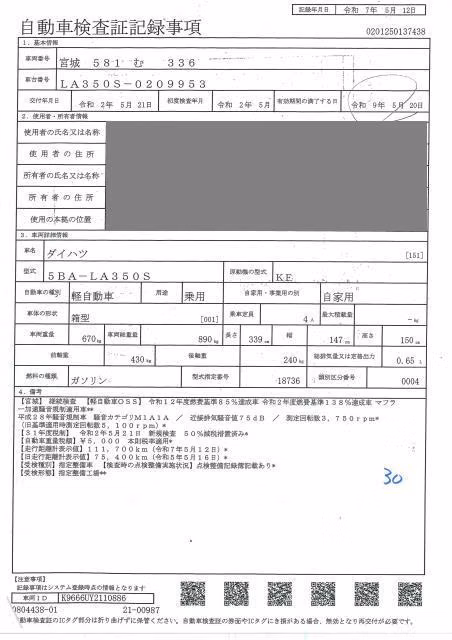 記録年月日 令和 7年 5月 12日
自動車検査証記録事項
0201250137438
1．基本情報
車両番号 宮城 581 む 336
車台番号 LA350S-0209953
交付年月日 令和 2年 5月 21日 初度検査年月 令和 2年 5月 有効期間の満了する日 令和 9年 5月 20日
2．使用者・所有者情報
使用者の氏名又は名称
使用者の住所
所有者の氏名又は名称
所有者の住所
使用の本拠の位置
3．車両詳細情報
車名 ダイハツ [151]
型式 5BA-LA350S 原動機の型式 KF
自動車の種別 軽自動車 用途 乗用 自家用・事業用の別 自家用
車体の形状 箱型 [001] 乗車定員 4人 最大積載量 -kg
車両重量 670kg 車両総重量 890kg 長さ 339cm 幅 147cm 高さ 150cm
前軸重 430kg 後軸重 240kg 総排気量又は定格出力 0.65 L
燃料の種類 ガソリン 型式指定番号 18736 類別区分番号 0004
4．備考
【宮城】 継続検査 【軽自動車OSS】 令和12年度燃費基準85%達成車 令和2年度燃費基準138%達成車 マフラ
ー加速騒音規制適用車**
平成28年騒音規制車 騒音カテゴリM1A1A ／ 近接排気騒音値75dB ／ 測定回転数3,750rpm*
(旧基準適用時測定回転数5,100rpm)*
【31年度税制】 令和2年5月21日 新規検査 50%減税措置済み*
【自動車重量税額】¥5,000 本則税率適用*
【走行距離計表示値】111,700km (令和7年5月12日)*
【旧走行距離計表示値】75,400km (令和5年5月16日)*
【受検種別】指定整備車 【検査時の点検整備実施状況】点検整備記録簿記載あり*
【受検形態】指定整備工場**
30
【注意事項】
記録事項はシステム登録時点の情報となります
車両ID K9666UY2110886
0804438-01 21-00987
自動車検査証のICタグ部分は折り曲げずに保管ください。自動車検査証の券面やICタグにき損がある場合、無効となり再交付が必要です。